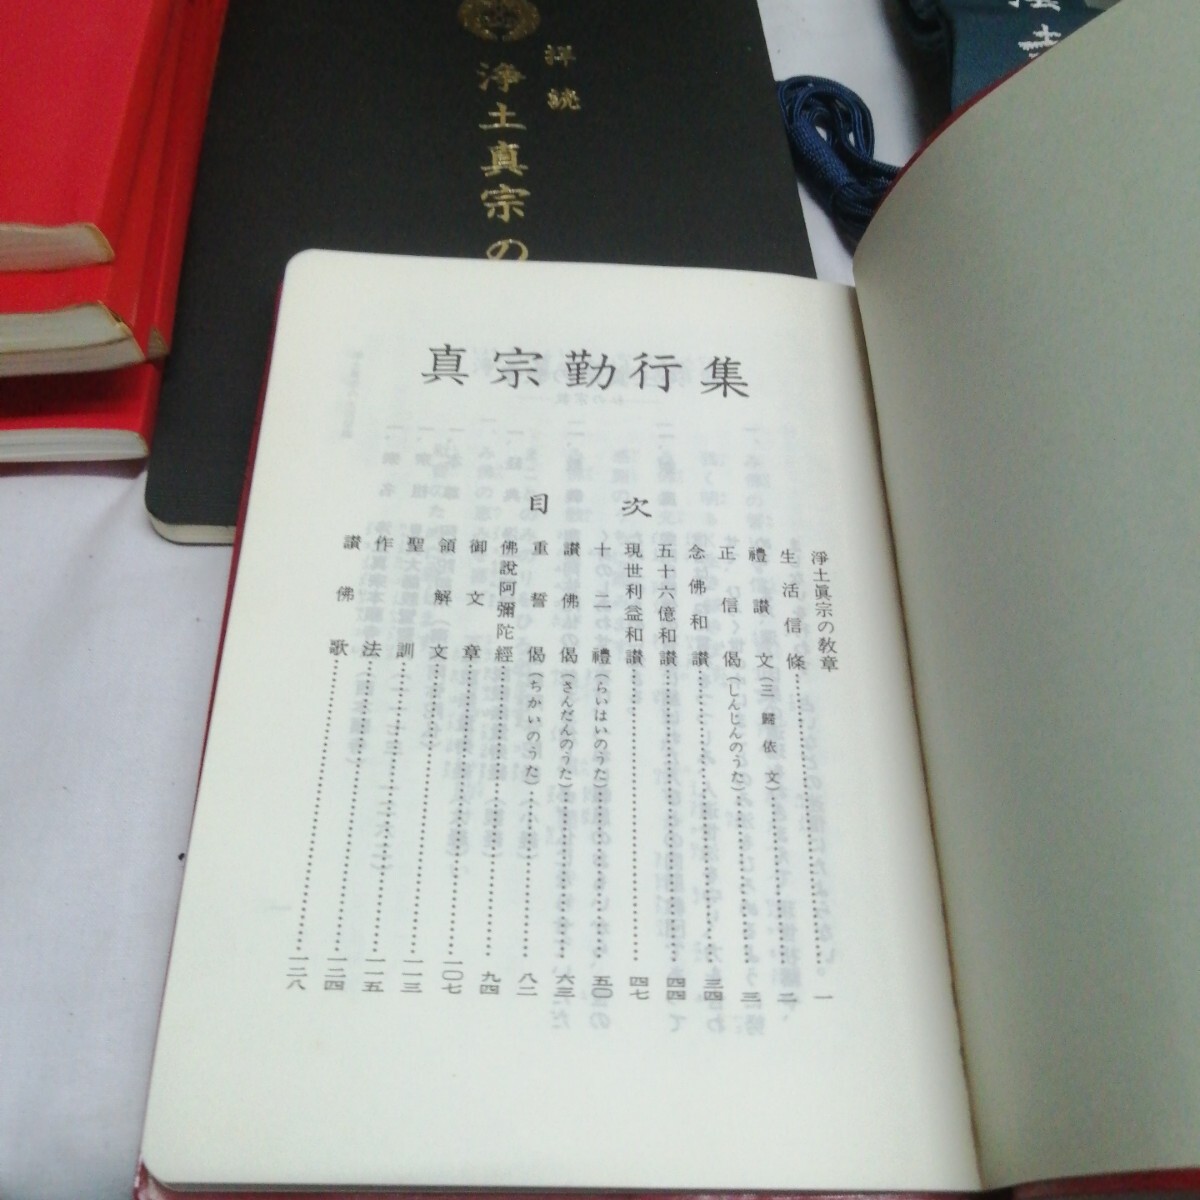 浄土真宗の
真宗勤行集
目次
淨土眞宗の教章
生活信條……………………一
禮讃文(三歸依文)……………………二
正信偈(しんじんのうた)……………………三
念佛和讃……………………三四
五十六億和讃……………………四四
現世利益和讃……………………四七
十二禮(らいはいのうた)……………………五〇
讃佛偈(さんだんのうた)……………………六三
重誓偈(ちかいのうた)……………………八二
佛說阿彌陀經……………………九四
御文章……………………一〇七
領解文……………………一一三
聖訓……………………一一五
作法……………………一二四
讃佛歌……………………一二八